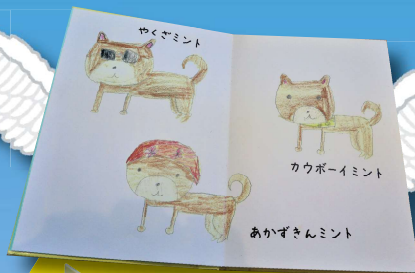 やくざミント
カウボーイミント
あかずきんミント